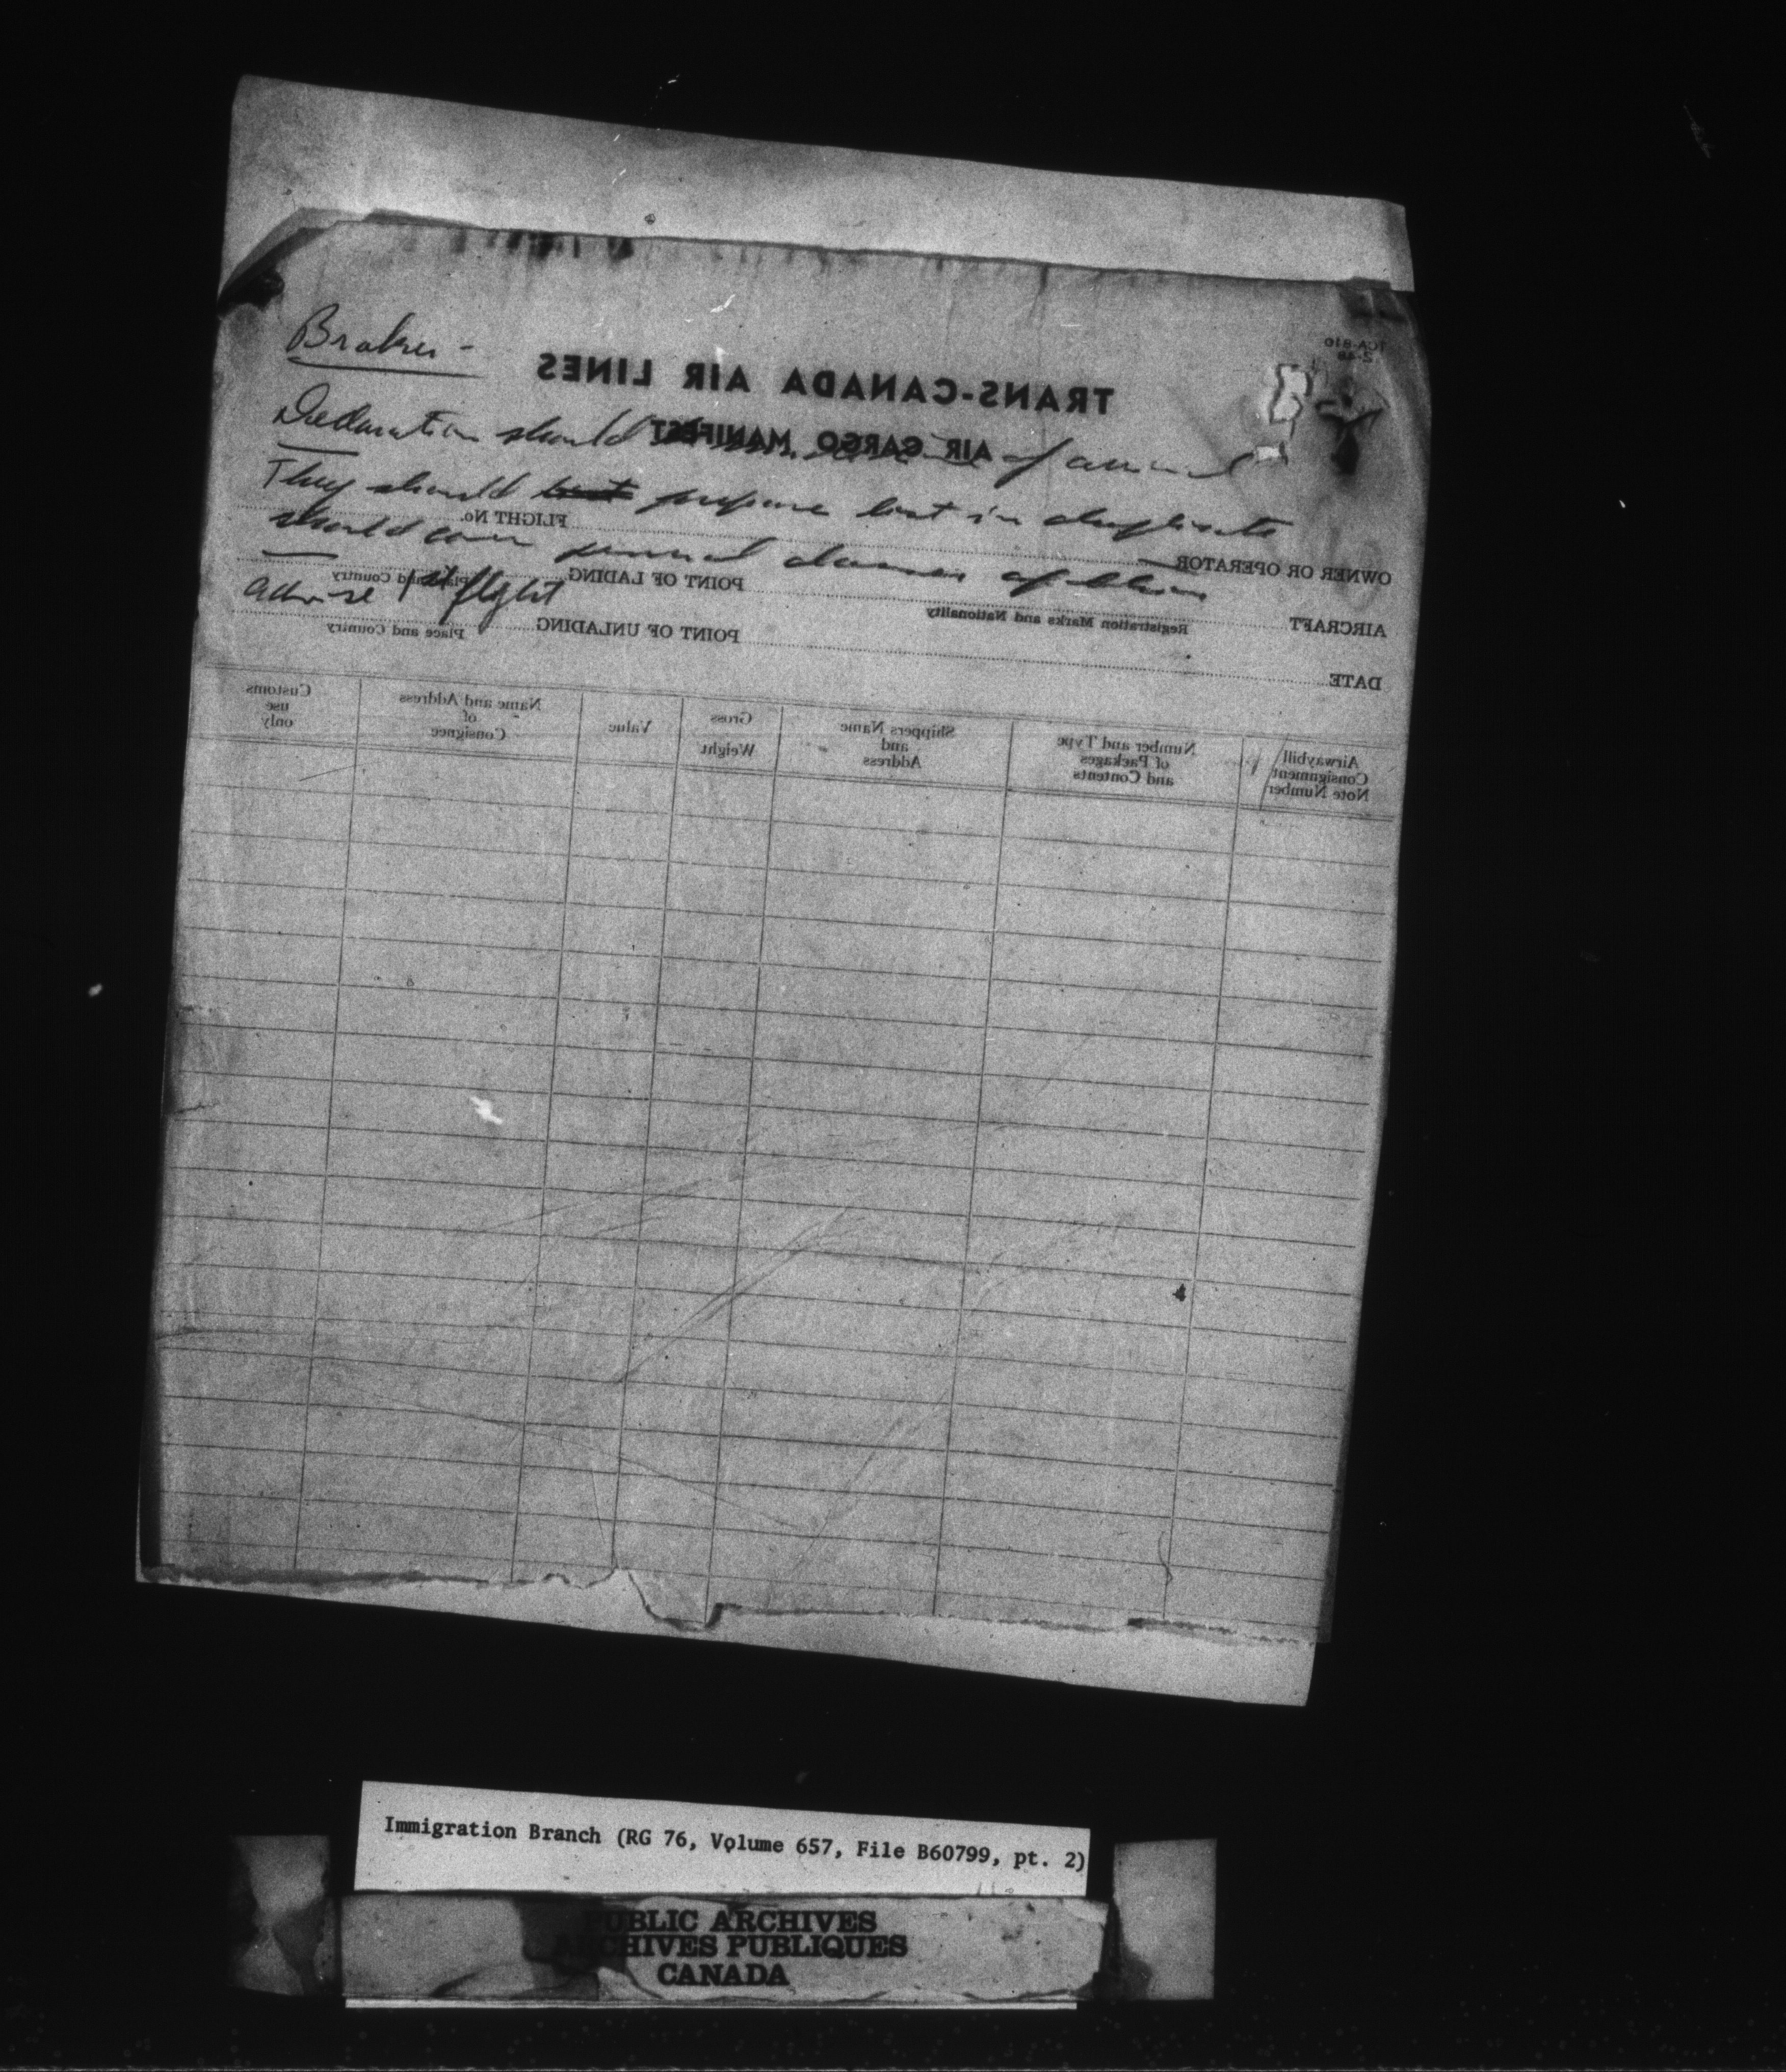 TCA-810
2-48
Broker -
TRANS-CANADA AIR LINES
AIR CARGO MANIFEST
Declaration should of arrival
They should prepare list in duplicate
FLIGHT No.
OWNER OR OPERATOR
should cover of
POINT OF LADING
Place and Country
advise 1st flight
AIRCRAFT
Registration Marks and Nationality
POINT OF UNLADING
Place and Country
DATE
Customs use only
Name and Address of Consignee
Value
Gross Weight
Shippers Name and Address
Number and Type of Packages and Contents
Airwaybill Consignment Note Number
Immigration Branch (RG 76, Volume 657, File B60799, pt. 2)
PUBLIC ARCHIVES
ARCHIVES PUBLIQUES
CANADA